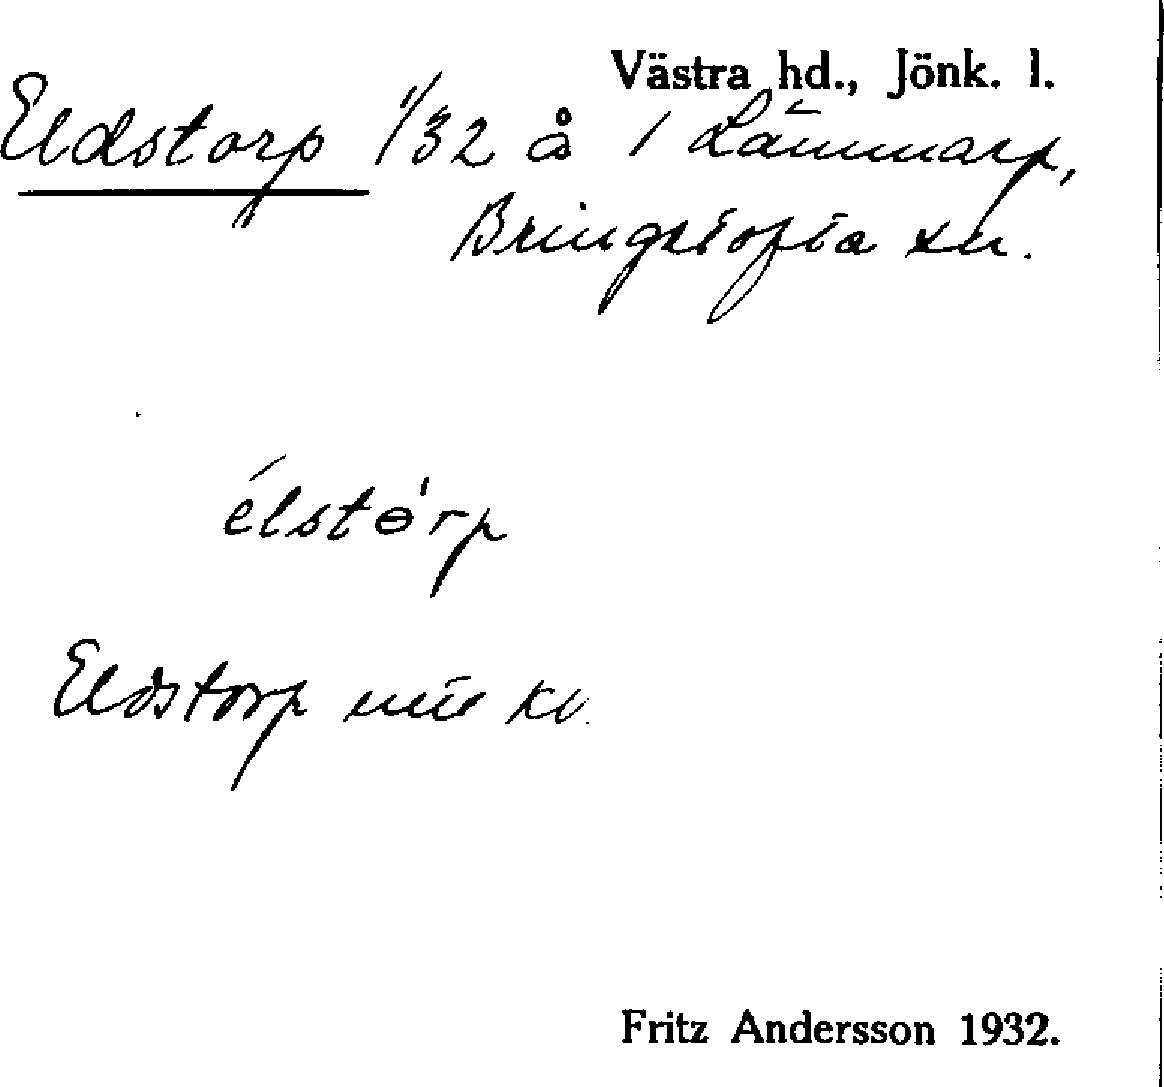 Västra hd., Jönk. l.
Eldstorp 1/32 å 1 Lämmarp,
Bringetofta sn.
élstɵ'rp
Eldstorp
Fritz Andersson 1932.